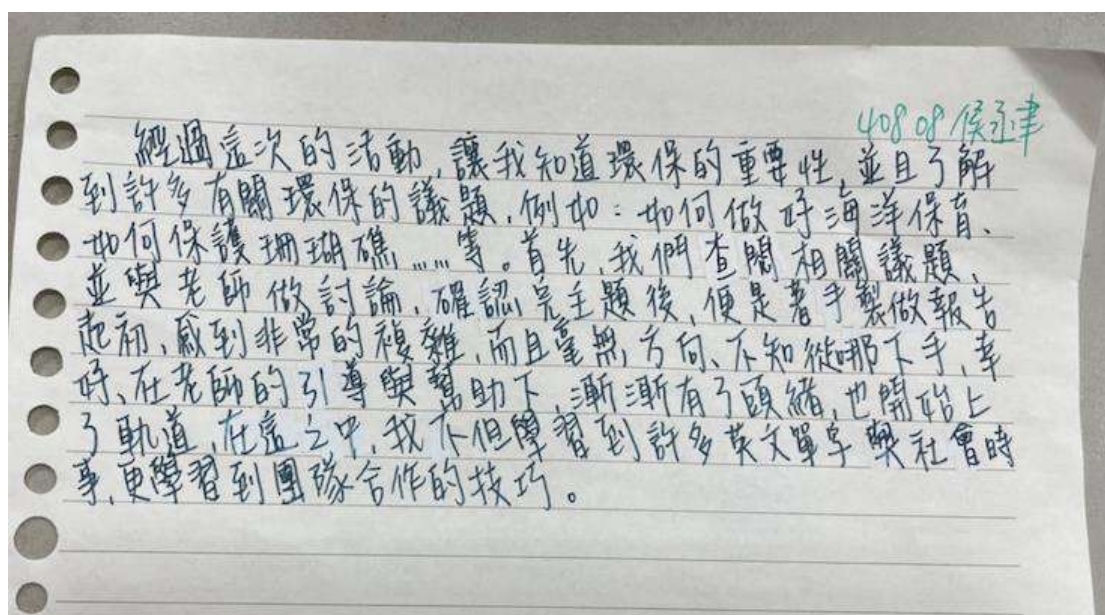 40808 侯丞津
經過這次的活動,讓我知道環保的重要性,並且了解
到許多有關環保的議題,例如:如何做好海洋保育、
如何保護珊瑚礁......等。首先,我們查閱相關議題,
並與老師做討論,確認完主題後,便是著手製做報告
起初,感到非常的複雜,而且毫無方向、不知從哪下手,幸
好、在老師的引導與幫助下,漸漸有了頭緒,也開始上
了軌道,在這之中,我不但學習到許多英文單字與社會時
事,更學習到團隊合作的技巧。